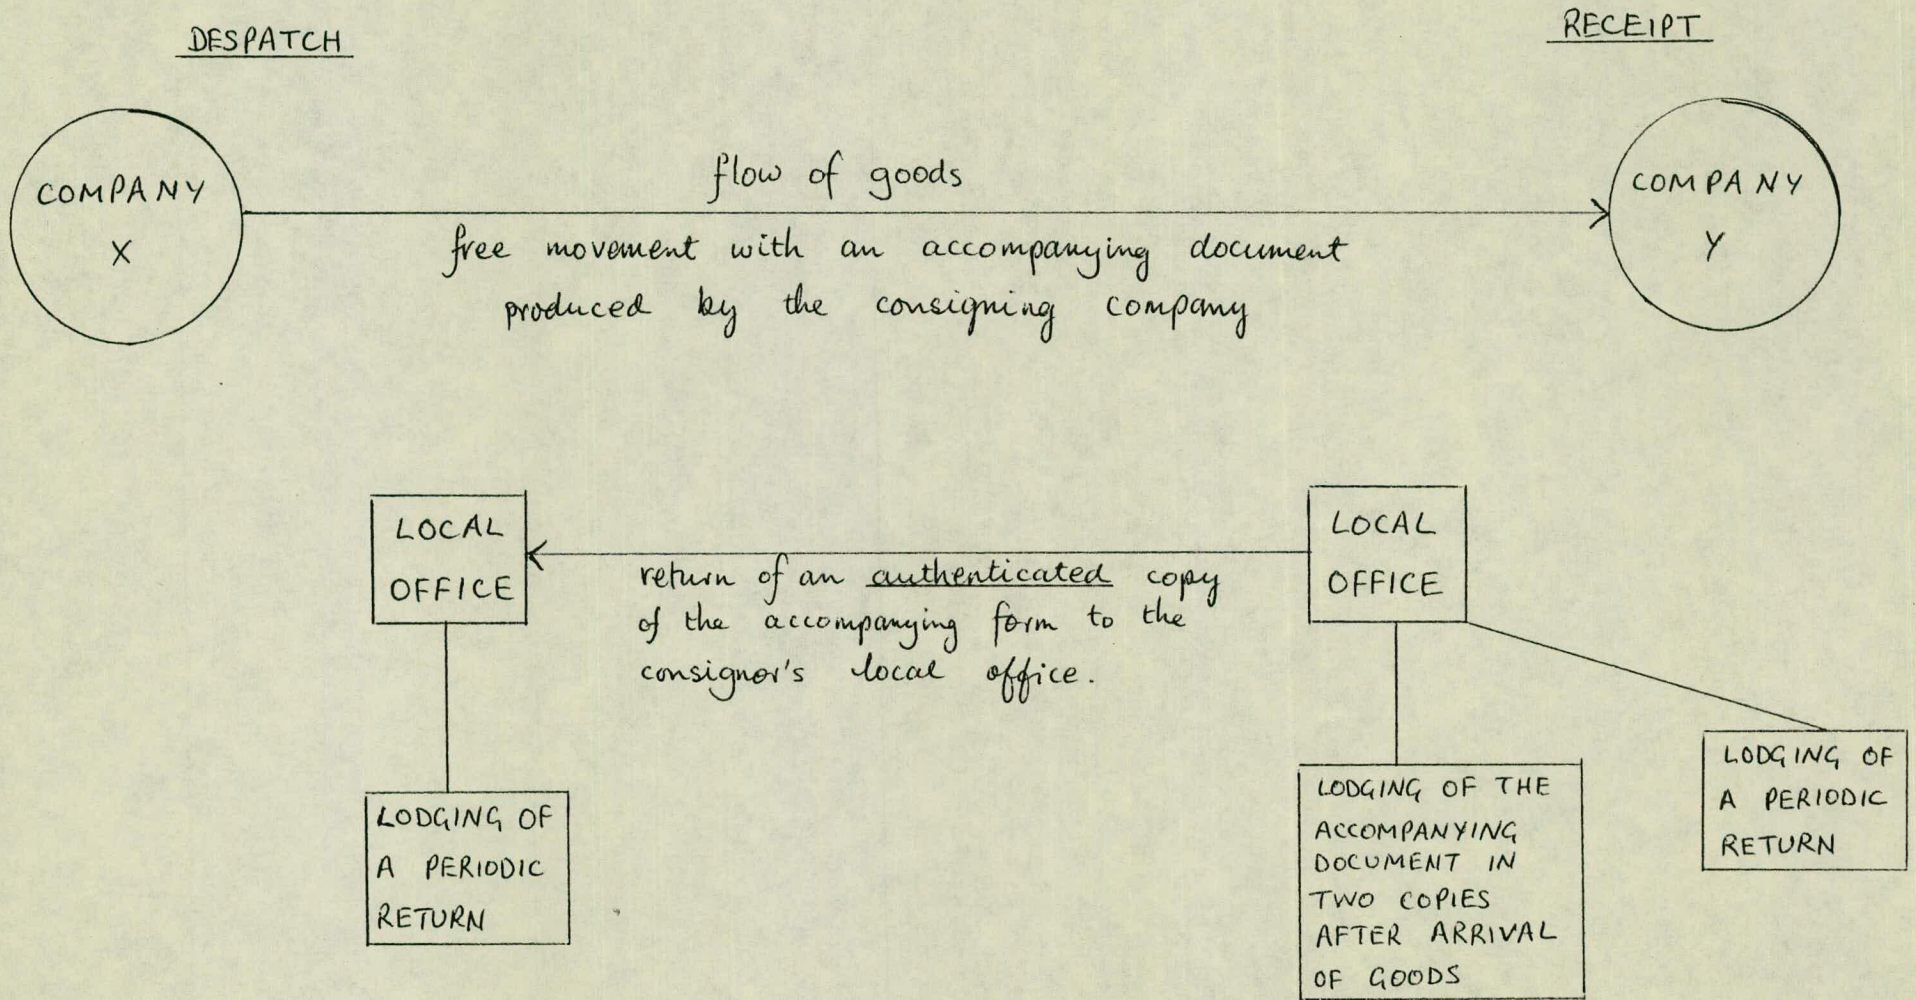 DESPATCH
RECEIPT
COMPANY
X
flow of goods
free movement with an accompanying document
produced by the consigning company
COMPANY
Y
LOCAL
OFFICE
return of an authenticated copy
of the accompanying form to the
consignor's local office.
LOCAL
OFFICE
LODGING OF
A PERIODIC
RETURN
LODGING OF THE
ACCOMPANYING
DOCUMENT IN
TWO COPIES
AFTER ARRIVAL
OF GOODS
LODGING OF
A PERIODIC
RETURN